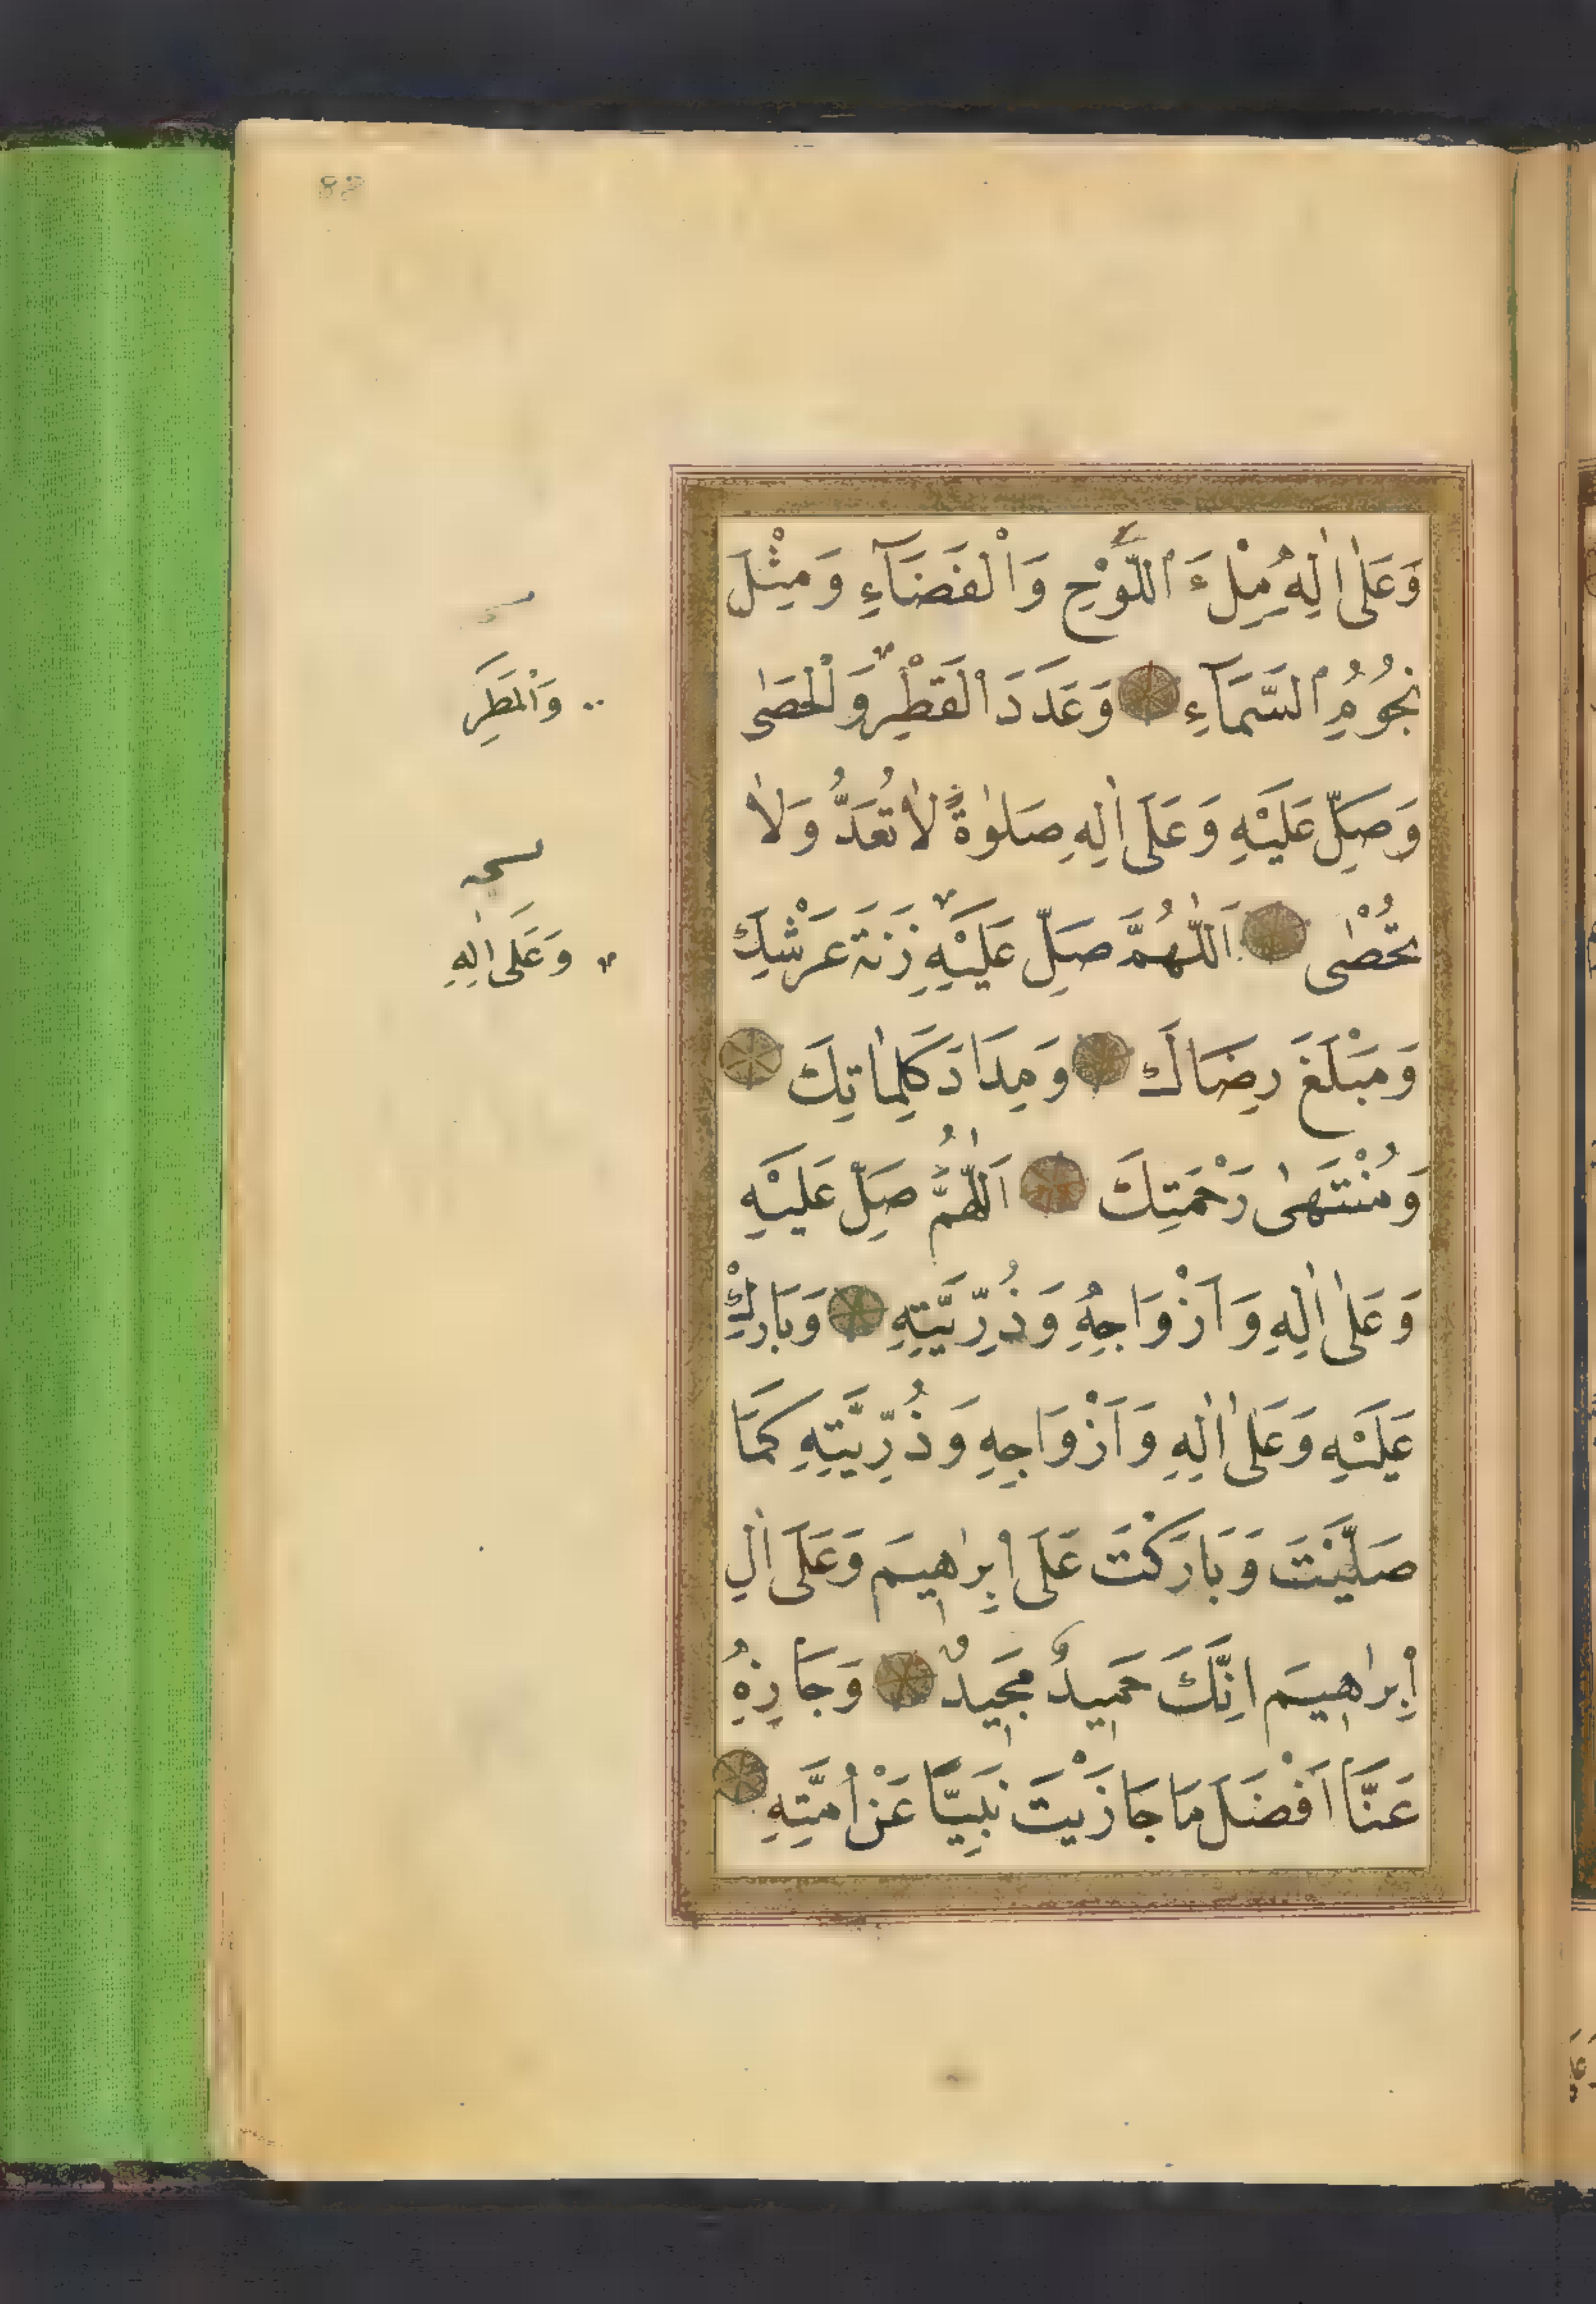 وَعَلٰى اٰلِهِ مِلْءَ اللَّوْحِ وَالْفَضَآءِ وَمِثْلَ
نُجُومِ السَّمَآءِ وَعَدَدَ الْقَطْرِ وَالْحَصٰى
وَصَلِّ عَلَيْهِ وَعَلَى اٰلِهِ صَلٰوةً لَا تُعَدُّ وَلَا
تُحْصٰى اَللّٰهُمَّ صَلِّ عَلَيْهِ زِنَةَ عَرْشِكَ
وَمَبْلَغَ رِضَاكَ وَمِدَادَ كَلِمَاتِكَ
وَمُنْتَهٰى رَحْمَتِكَ اَللّٰهُمَّ صَلِّ عَلَيْهِ
وَعَلٰى اٰلِهِ وَاَزْوَاجِهِ وَذُرِّيَّتِهِ وَبَارِكْ
عَلَيْهِ وَعَلٰى اٰلِهِ وَاَزْوَاجِهِ وَذُرِّيَّتِهِ كَمَا
صَلَّيْتَ وَبَارَكْتَ عَلَى اِبْرٰهِيمَ وَعَلَى اٰلِ
اِبْرٰهِيمَ اِنَّكَ حَمِيدٌ مَجِيدٌ وَجَازِهِ
عَنَّا اَفْضَلَ مَا جَازَيْتَ نَبِيًّا عَنْ اُمَّتِهِ
وَالْمَطَرِ
وَعَلَى اٰلِهِ